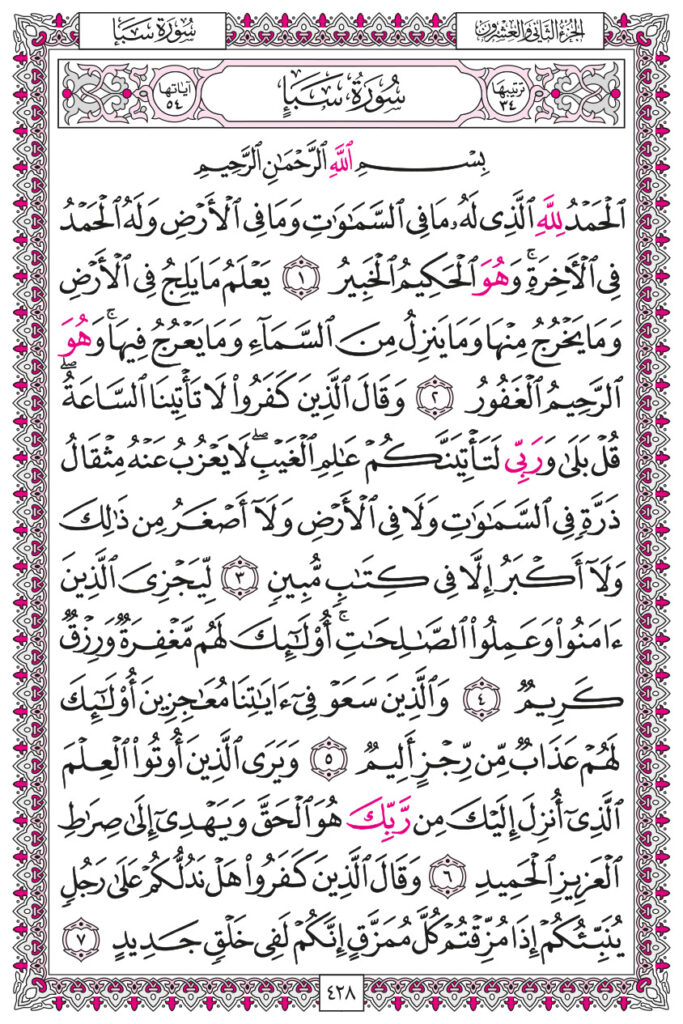 الجزء الثاني والعشرون
سورة سبإ
ترتيبها ٣٤
سُورَةُ سَبَإٍ
آياتها ٥٤
بِسْمِ ٱللَّهِ ٱلرَّحْمَٰنِ ٱلرَّحِيمِ
ٱلْحَمْدُ لِلَّهِ ٱلَّذِى لَهُۥ مَا فِى ٱلسَّمَٰوَٰتِ وَمَا فِى ٱلْأَرْضِ وَلَهُ ٱلْحَمْدُ
فِى ٱلْأَخِرَةِۚ وَهُوَ ٱلْحَكِيمُ ٱلْخَبِيرُ ١ يَعْلَمُ مَا يَلِجُ فِى ٱلْأَرْضِ
وَمَا يَخْرُجُ مِنْهَا وَمَا يَنزِلُ مِنَ ٱلسَّمَآءِ وَمَا يَعْرُجُ فِيهَاۚ وَهُوَ
ٱلرَّحِيمُ ٱلْغَفُورُ ٢ وَقَالَ ٱلَّذِينَ كَفَرُوا۟ لَا تَأْتِينَا ٱلسَّاعَةُۖ
قُلْ بَلَىٰ وَرَبِّى لَتَأْتِيَنَّكُمْ عَٰلِمِ ٱلْغَيْبِۖ لَا يَعْزُبُ عَنْهُ مِثْقَالُ
ذَرَّةٍ فِى ٱلسَّمَٰوَٰتِ وَلَا فِى ٱلْأَرْضِ وَلَآ أَصْغَرُ مِن ذَٰلِكَ
وَلَآ أَكْبَرُ إِلَّا فِى كِتَٰبٍ مُّبِينٍ ٣ لِّيَجْزِىَ ٱلَّذِينَ
ءَامَنُوا۟ وَعَمِلُوا۟ ٱلصَّٰلِحَٰتِۚ أُو۟لَٰٓئِكَ لَهُم مَّغْفِرَةٌ وَرِزْقٌ
كَرِيمٌ ٤ وَٱلَّذِينَ سَعَوْ فِىٓ ءَايَٰتِنَا مُعَٰجِزِينَ أُو۟لَٰٓئِكَ
لَهُمْ عَذَابٌ مِّن رِّجْزٍ أَلِيمٌ ٥ وَيَرَى ٱلَّذِينَ أُوتُوا۟ ٱلْعِلْمَ
ٱلَّذِىٓ أُنزِلَ إِلَيْكَ مِن رَّبِّكَ هُوَ ٱلْحَقَّ وَيَهْدِىٓ إِلَىٰ صِرَٰطِ
ٱلْعَزِيزِ ٱلْحَمِيدِ ٦ وَقَالَ ٱلَّذِينَ كَفَرُوا۟ هَلْ نَدُلُّكُمْ عَلَىٰ رَجُلٍ
يُنَبِّئُكُمْ إِذَا مُزِّقْتُمْ كُلَّ مُمَزَّقٍ إِنَّكُمْ لَفِى خَلْقٍ جَدِيدٍ ٧
٤٢٨